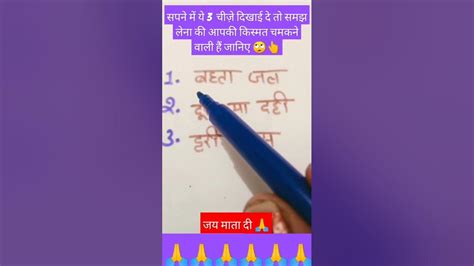 सपने में ये 3 चीज़े दिखाई दे तो समझ
लेना की आपकी किस्मत चमकने
वाली हैं जानिए 🙄👆
1. बहता जल
2. दू मा दही
3. हरी
जय माता दी 🙏
🙏🙏🙏🙏🙏🙏